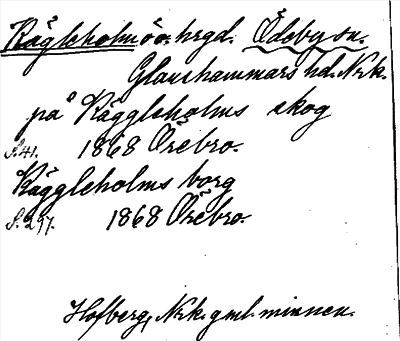 Kägleholm öo. hrgd. Ödeby sn.
Glanshammars hd. Nrk.
på Käggleholms skog
s. 41. 1868 Örebro.
Käggleholms borg
s. 297. 1868 Örebro.
Hofberg, Nrk. gml. minnen.